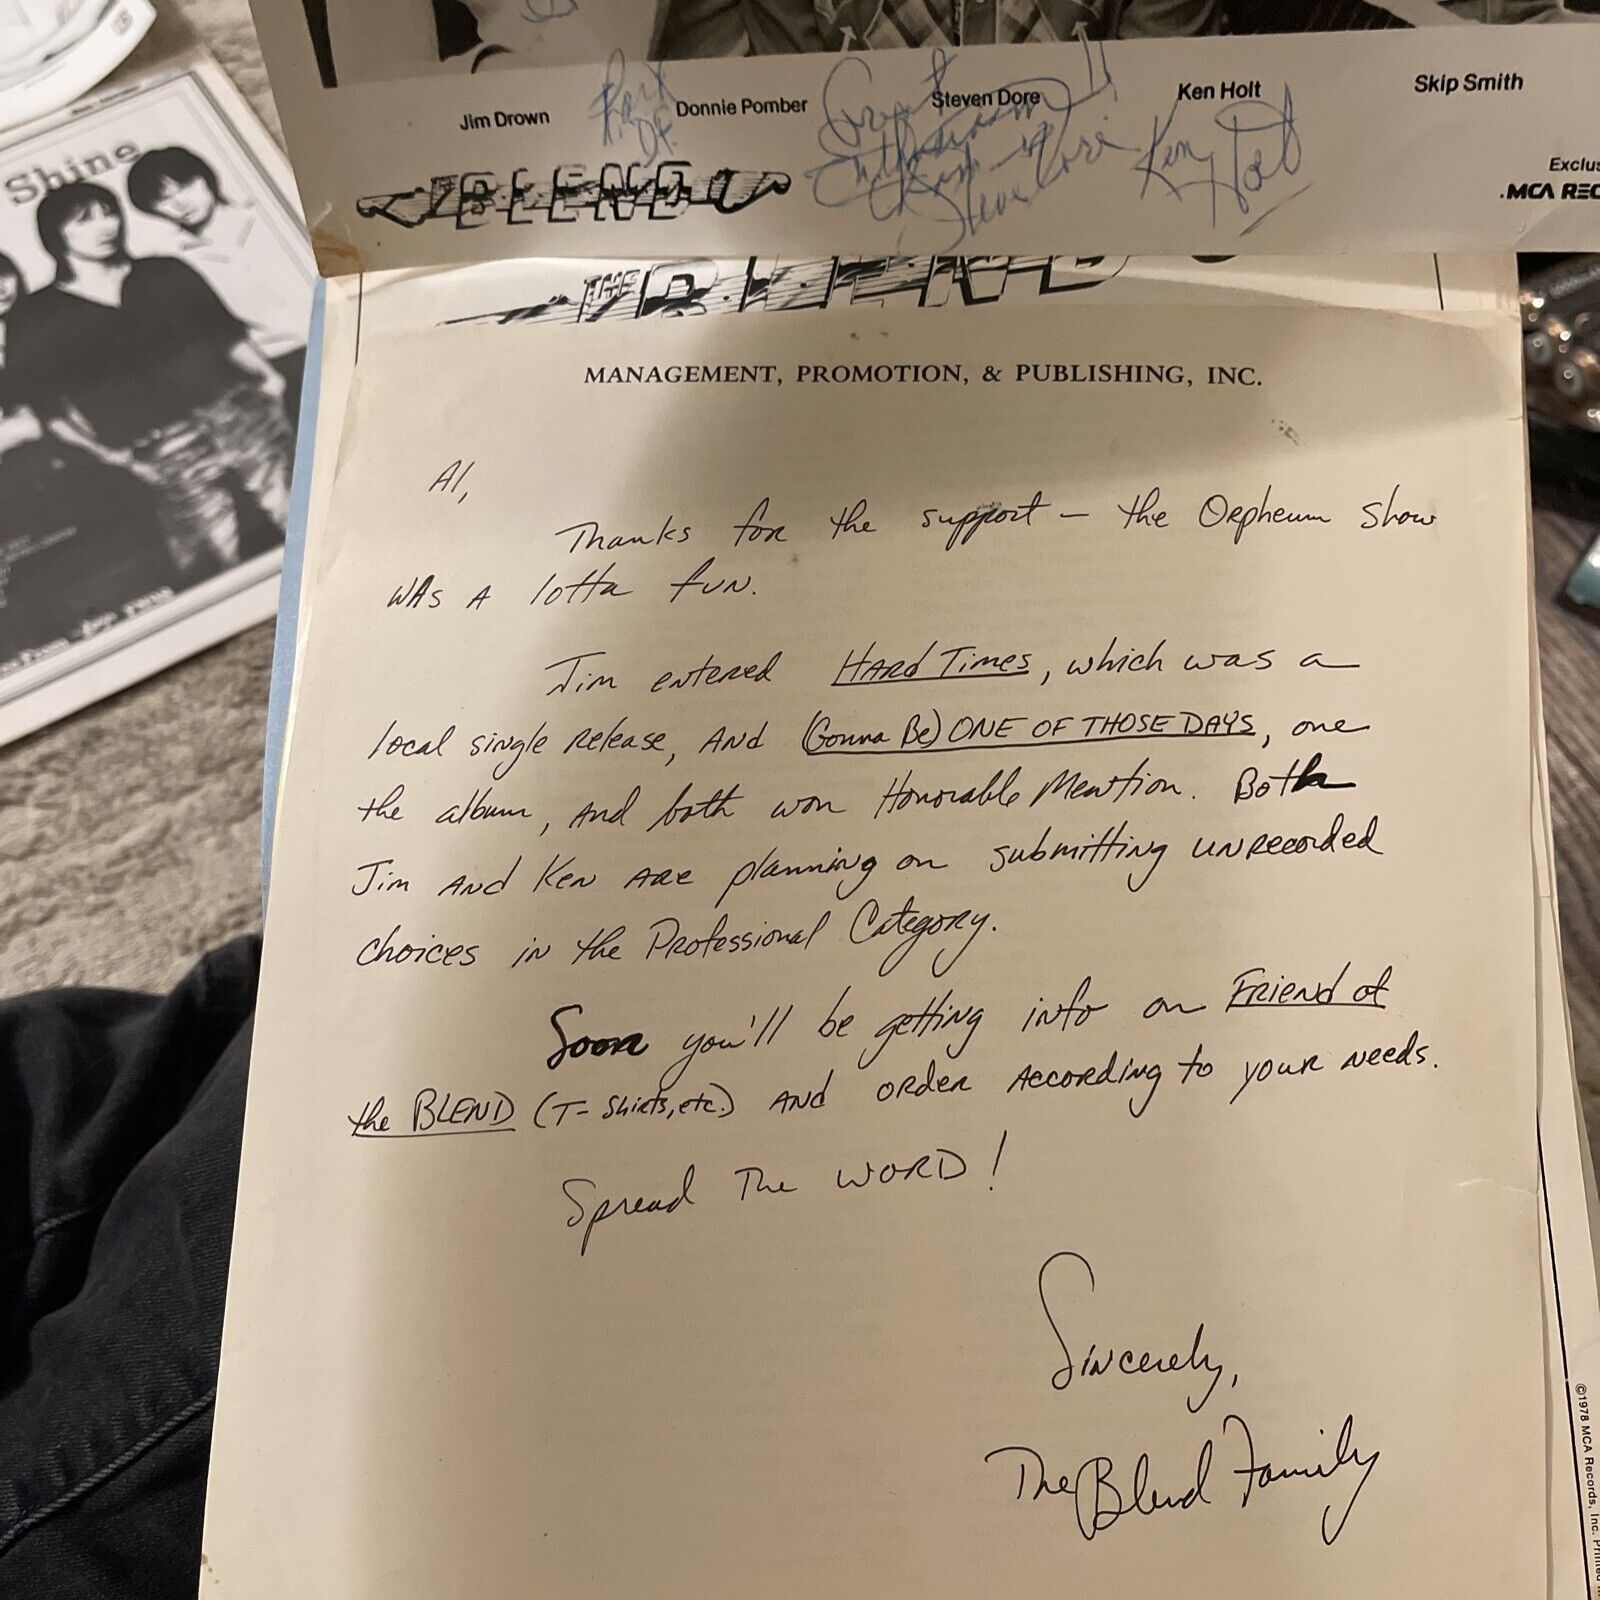 Shine
Jim Drown
Donnie Pomber
Steven Dore
Ken Holt
Skip Smith
Steve Dore
Ken Holt
BLEND
Exclus
MCA REC
THE BLEND
MANAGEMENT, PROMOTION, & PUBLISHING, INC.
Al,
Thanks for the support — the Orpheum Show
was a lotta fun.
Jim entered Hard Times, which was a
local single release, and (Gonna Be) ONE OF THOSE DAYS, one
the album, and both won Honorable Mention. Both
Jim and Ken are planning on submitting unrecorded
choices in the Professional Category.
Soon you'll be getting info on Friend of
the BLEND (T-Shirts, etc.) and order according to your needs.
Spread The WORD!
Sincerely,
The Blend Family
©1978 MCA Records, Inc. Printed